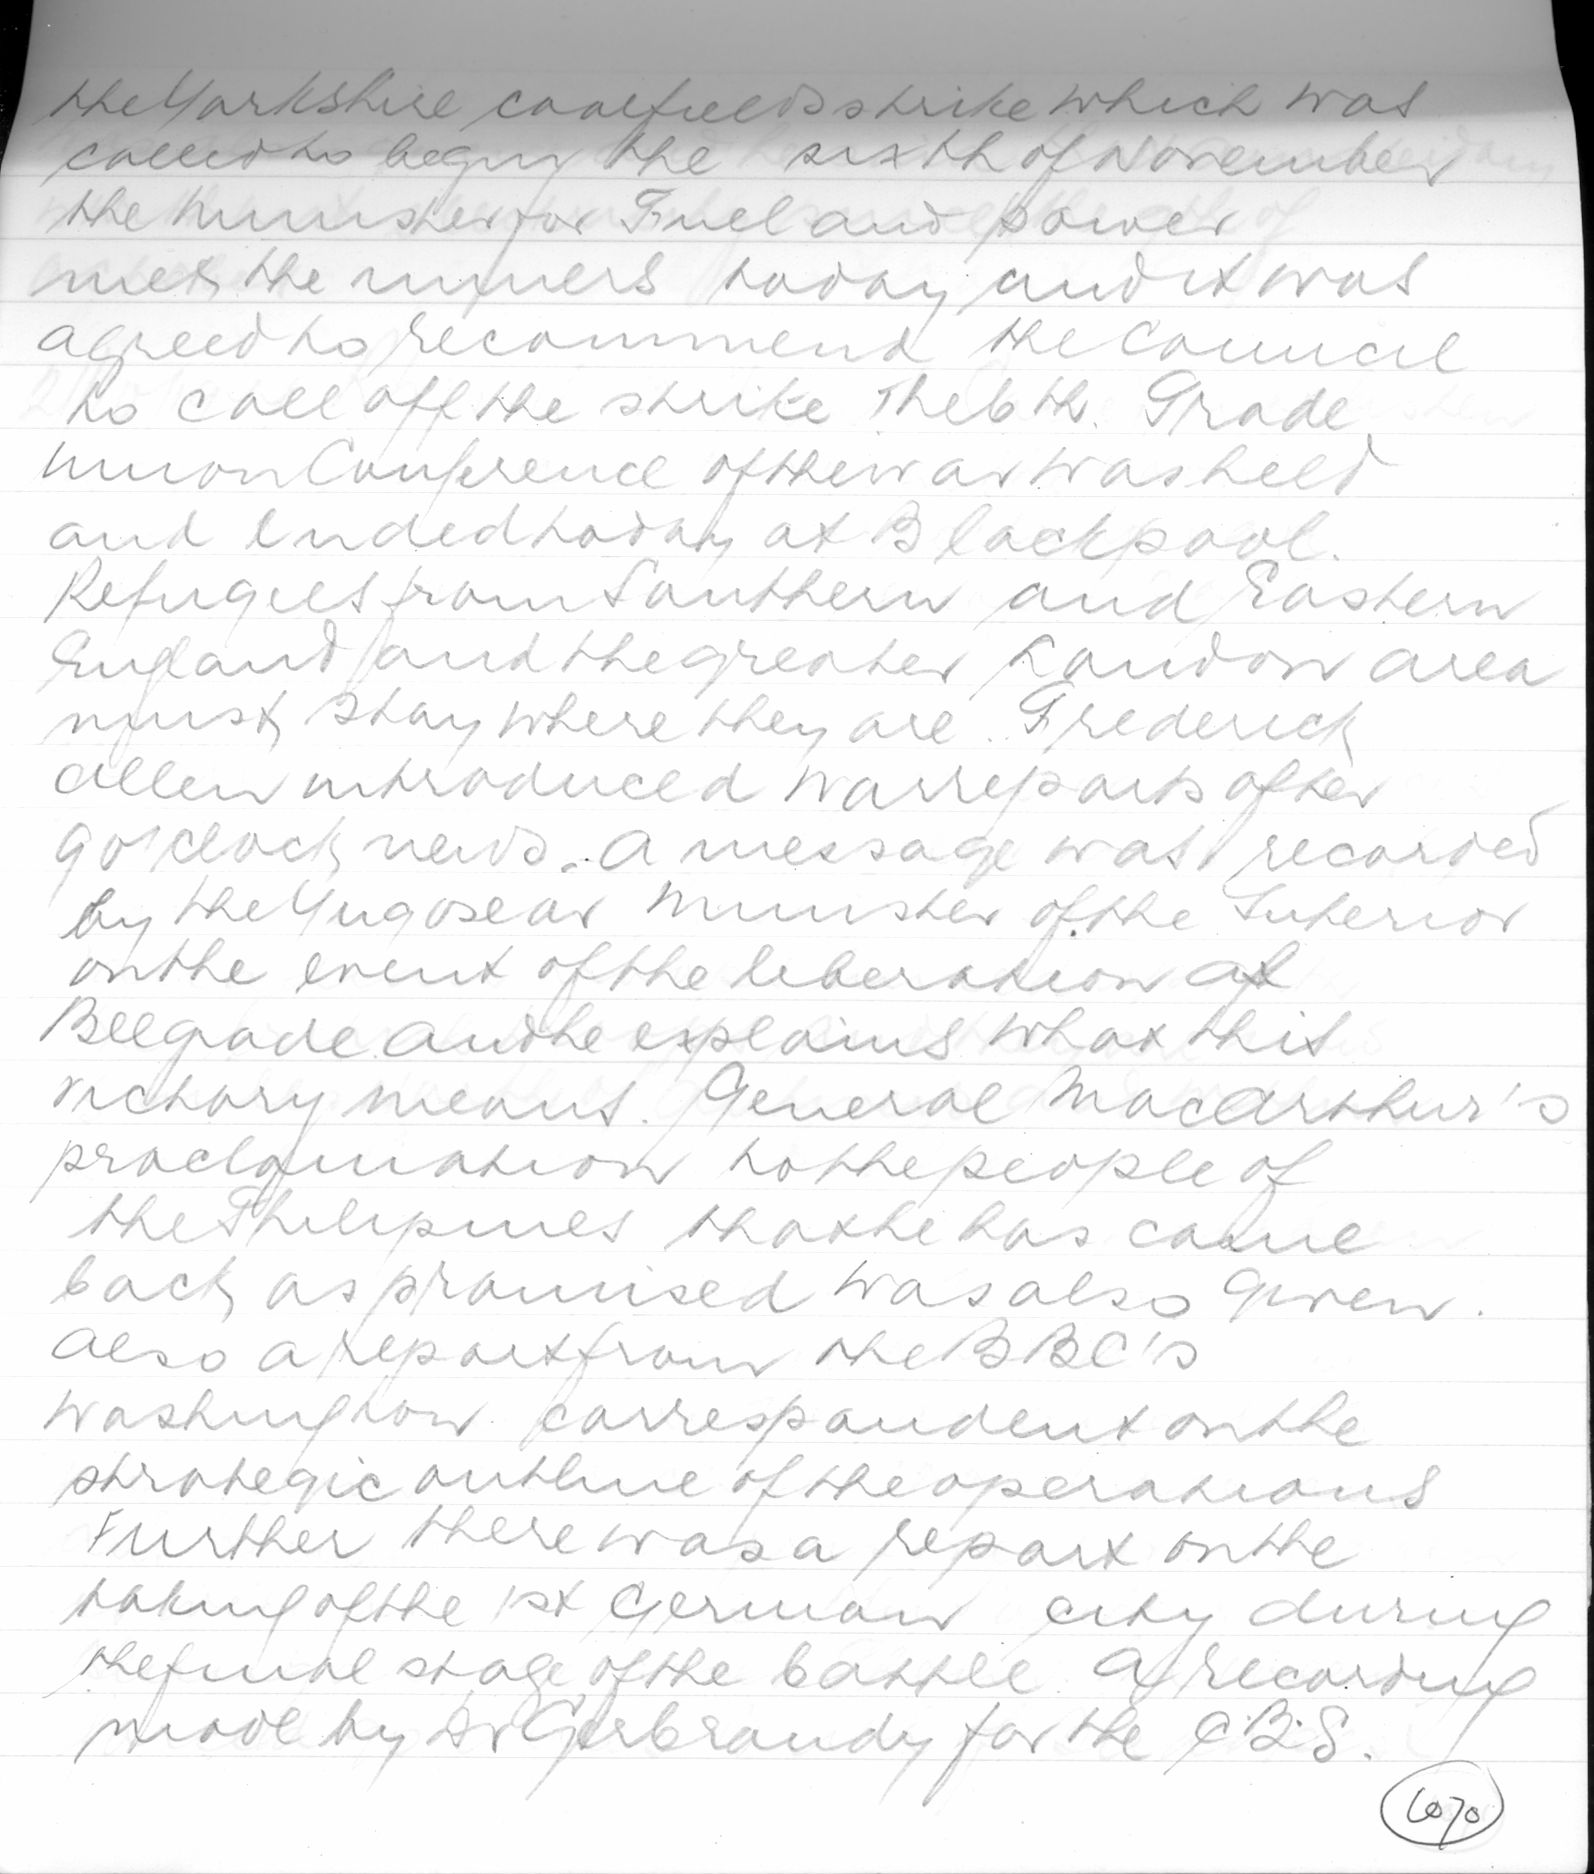 the Yorkshire coalfields strike which was
called to begin the sixth of November
the Minister for Fuel and power
met the miners today and it was
agreed to recommend the Council
to call off the strike The 6th. Trade
Union Conference of the war was held
and ended today at Blackpool.
Refugees from Southern and Eastern
England and the greater London area
must stay where they are. Frederick
Allen introduced war reports after
9 o'clock news. A message was recorded
by the Yugoslav Minister of the Interior
on the event of the liberation of
Belgrade and he explains what this
victory means. General MacArthur's
proclamation to the people of
the Philipines that he has come
back as promised was also given.
Also a report from the BBC's
Washington correspondent on the
strategic outline of the operations
Further there was a report on the
taking of the 1st German city during
the final stage of the battle. A recording
made by Dr Gerbrandy for the C.B.S.
6070